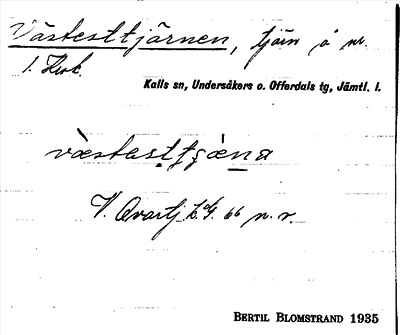 Västesttjärnen, tjärn å nr.
1.
Kalls sn, Undersåkers o. Offerdals tg, Jämtl. l.
væstesttjæ̀na
V. 66 n. v.
BERTIL BLOMSTRAND 1935